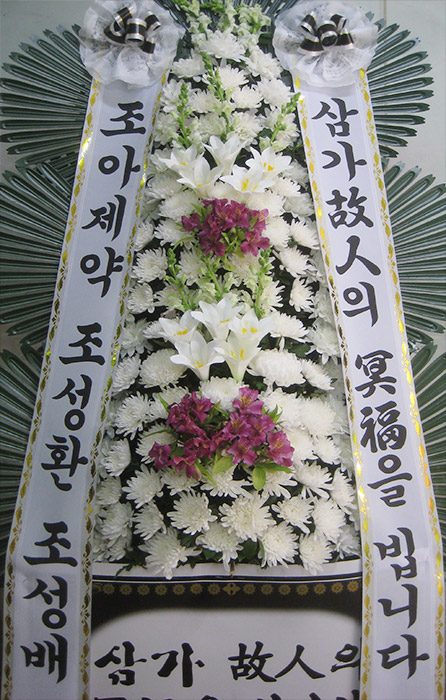 삼가 故人의 冥福을 빕니다
조아제약 조성환 조성배
삼가 故人의